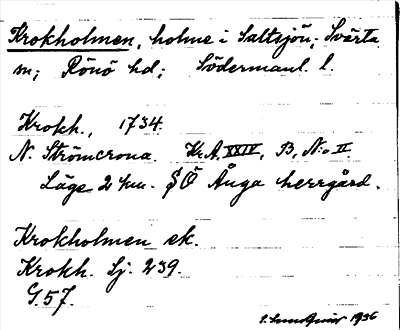 Krokholmen, holme i Saltsjön; Svärta
sn; Rönö hd; Södermanl. l.
Krokh., 1734.
N. Strömcrona. Kr.A, XXIV, B, N:o II.
Läge 2 km. SÖ Ånga herrgård.
Krokholmen ek.
Krokh. Sj. 239.
G.57.
1936